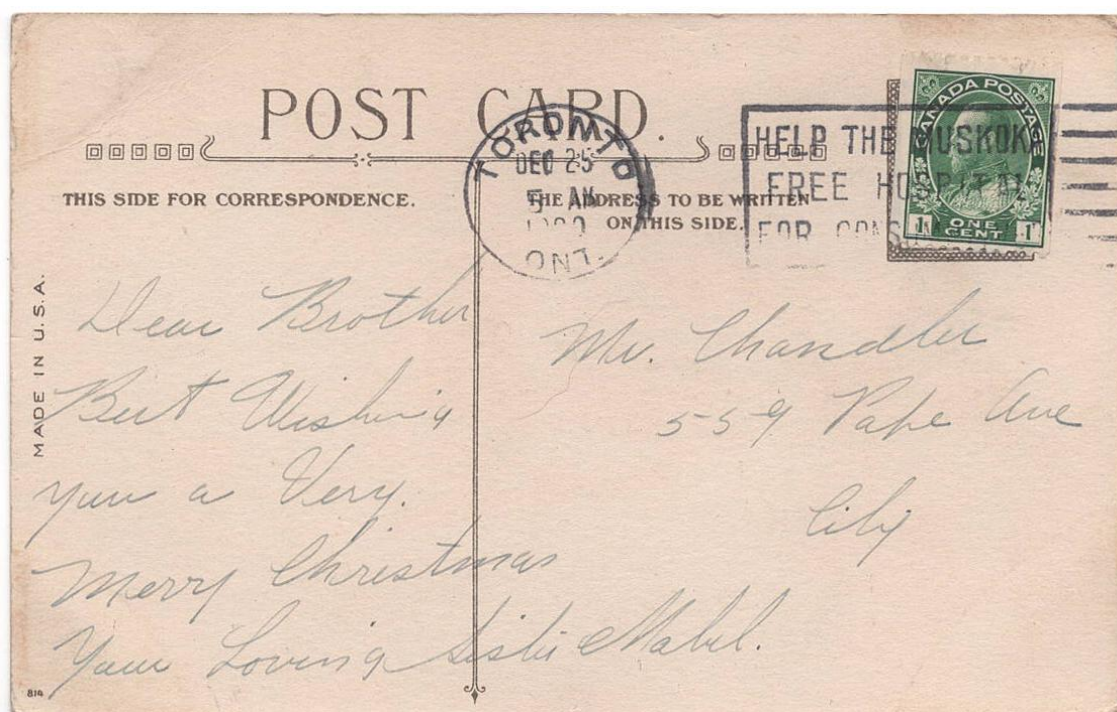 POST CARD.
THIS SIDE FOR CORRESPONDENCE.
THE ADDRESS TO BE WRITTEN
ON THIS SIDE.
TORONTO
DEC 25
5 AM
ONT.
HELP THE MUSKOKA
FREE HOSPITAL
FOR CONS
CANADA POSTAGE
1 ONE 1
CENT
MADE IN U.S.A.
Dear Brother
Best Wishing
you a Very.
Merry Christmas
Your Loving Sister Mabel.
Mr. Chandler
559 Pape Ave
City
814